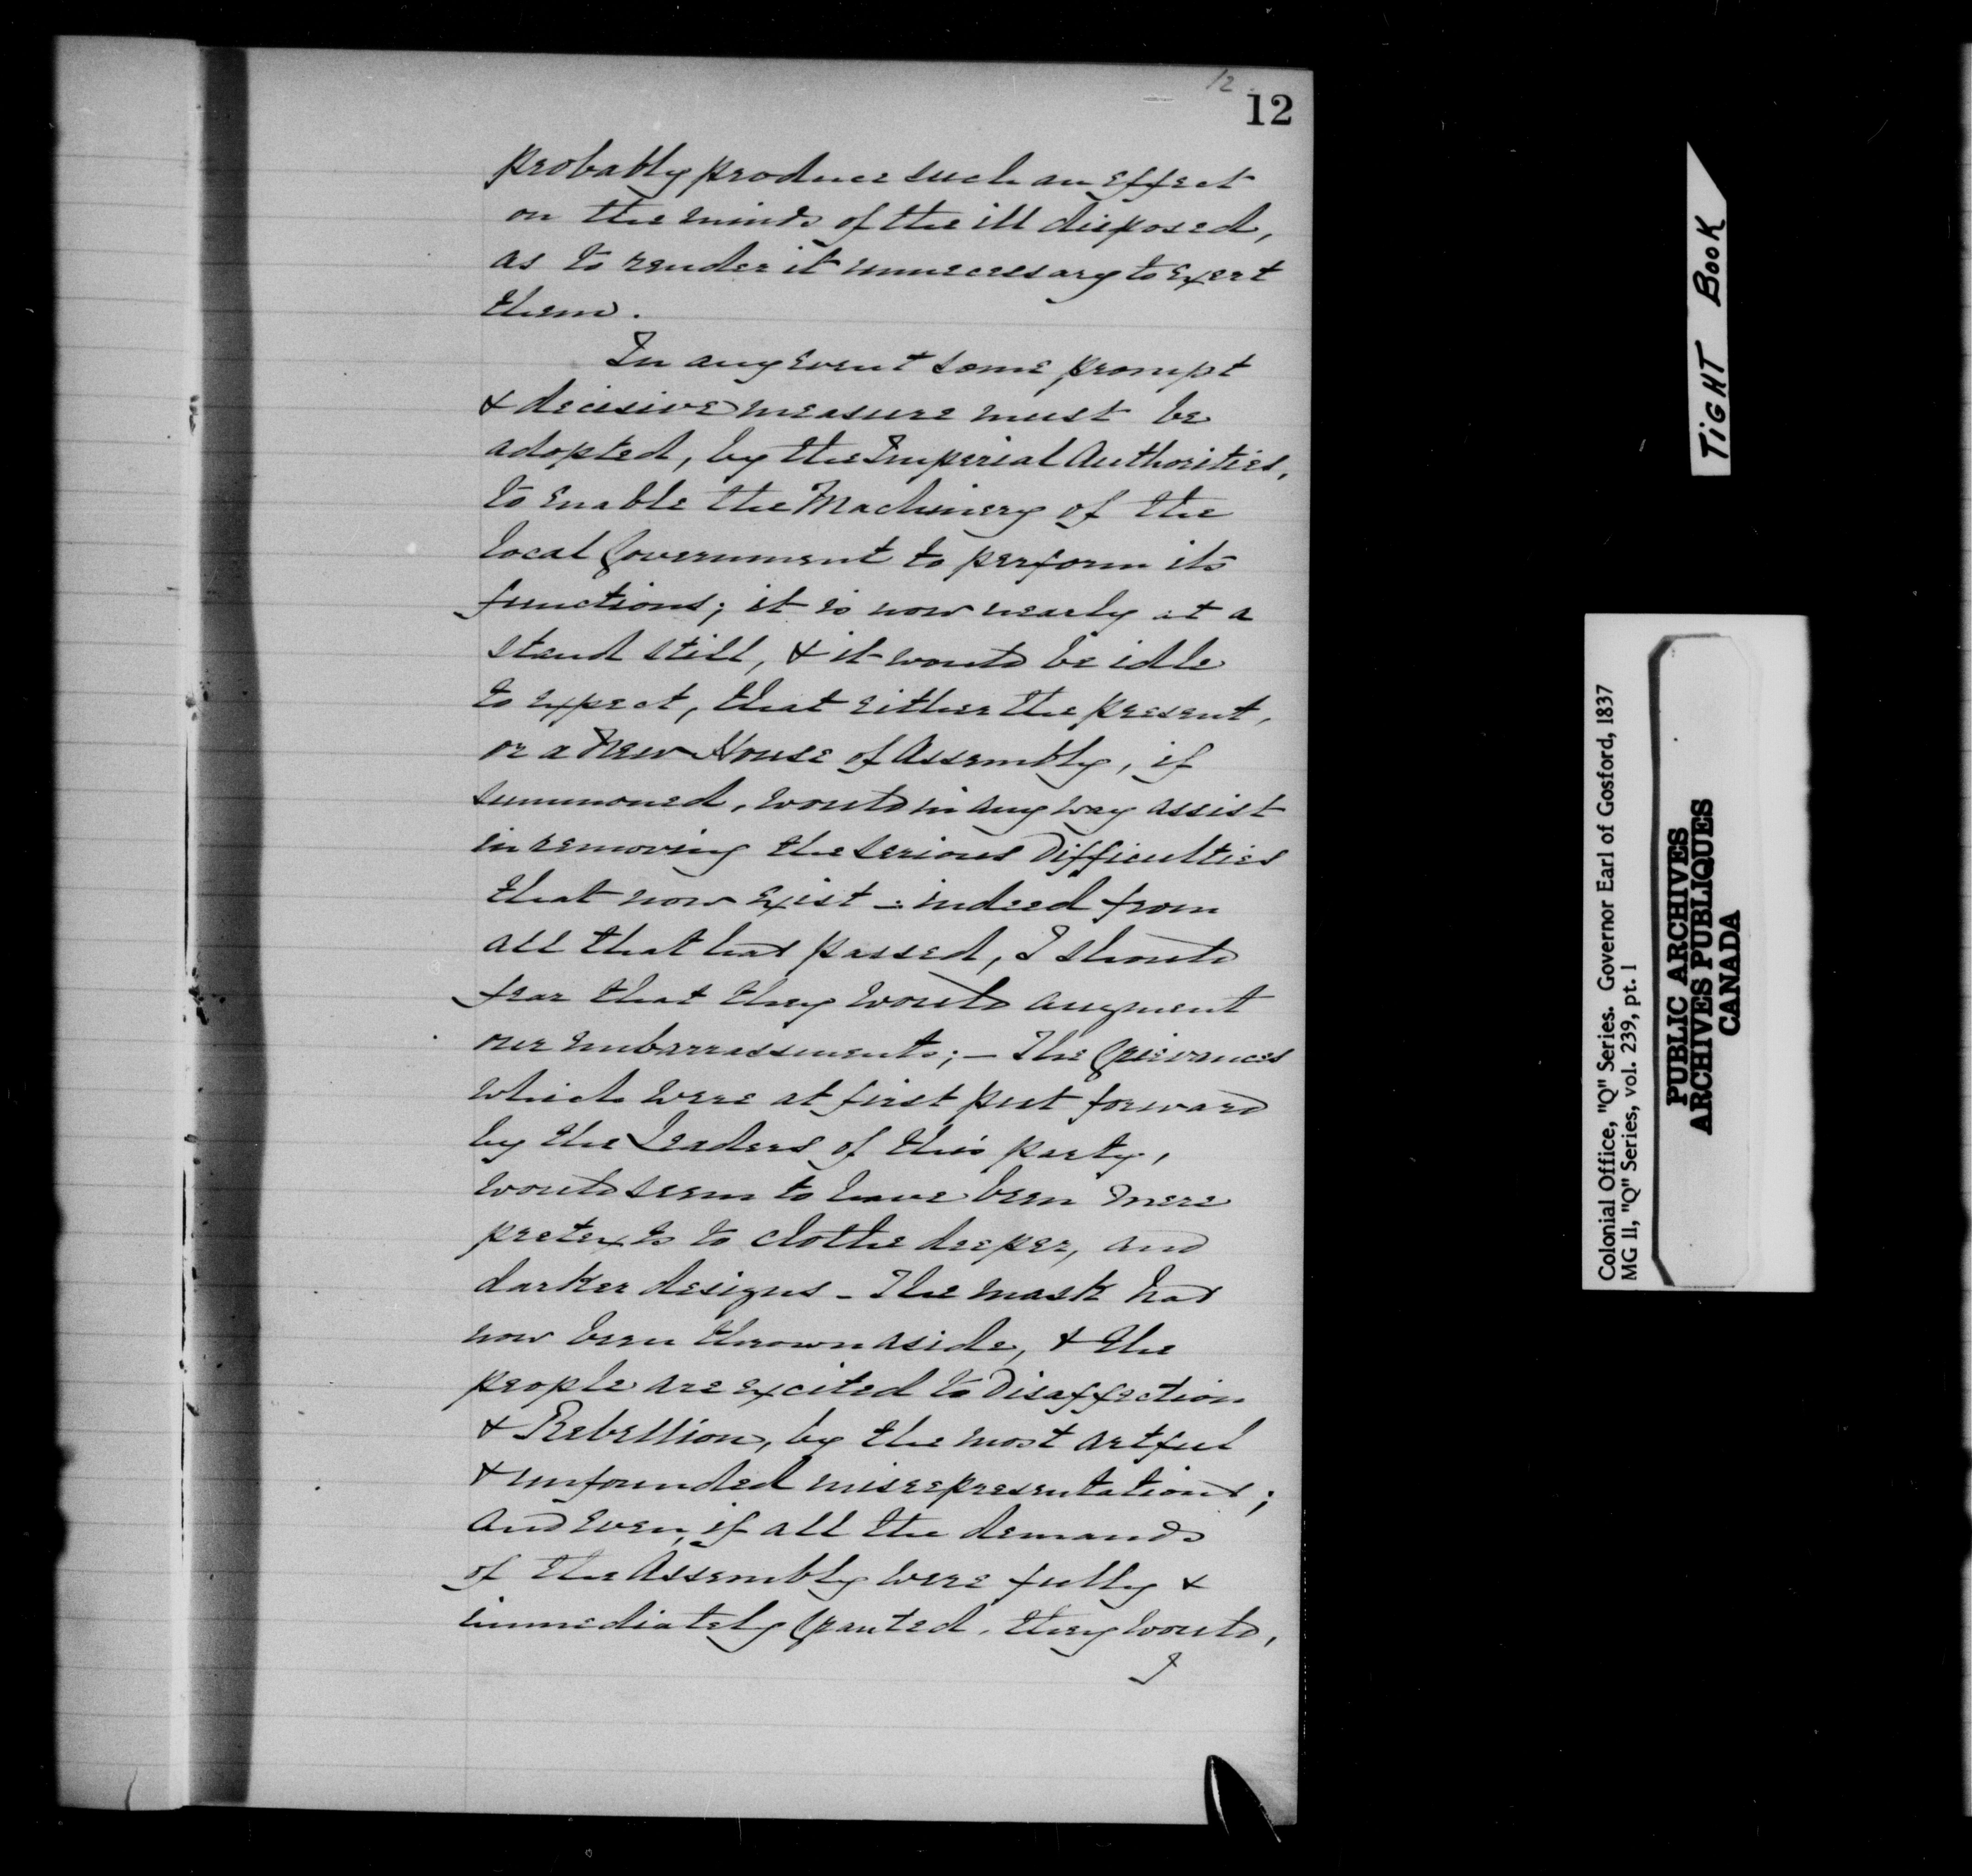 12
12
probably produce such an effect
on the minds of the ill disposed,
as to render it unnecessary to exert
them.
In any event some prompt
& decisive measure must be
adopted, by the Imperial Authorities,
to enable the Machinery of the
local Government to perform its
functions; it is now nearly at a
stand still, & it would be idle
to expect, that either the present,
or a New House of Assembly, if
summoned, would in any way assist
in removing the serious Difficulties
that now exist - indeed from
all that has passed, I should
fear that they would augment
our embarrassments; - The Grievances
which were at first put forward
by the Leaders of this party,
would seem to have been mere
pretexts to clothe deeper, and
darker designs - The mask has
now been thrown aside, & the
people are excited to Disaffection
& Rebellion, by the most artful
& unfounded misrepresentations;
and even, if all the demands
of the Assembly were fully &
immediately Granted, they would,
I
TIGHT BOOK
Colonial Office, "Q" Series. Governor Earl of Gosford, 1837
MG 11, "Q" Series, vol. 239, pt. 1
PUBLIC ARCHIVES
ARCHIVES PUBLIQUES
CANADA